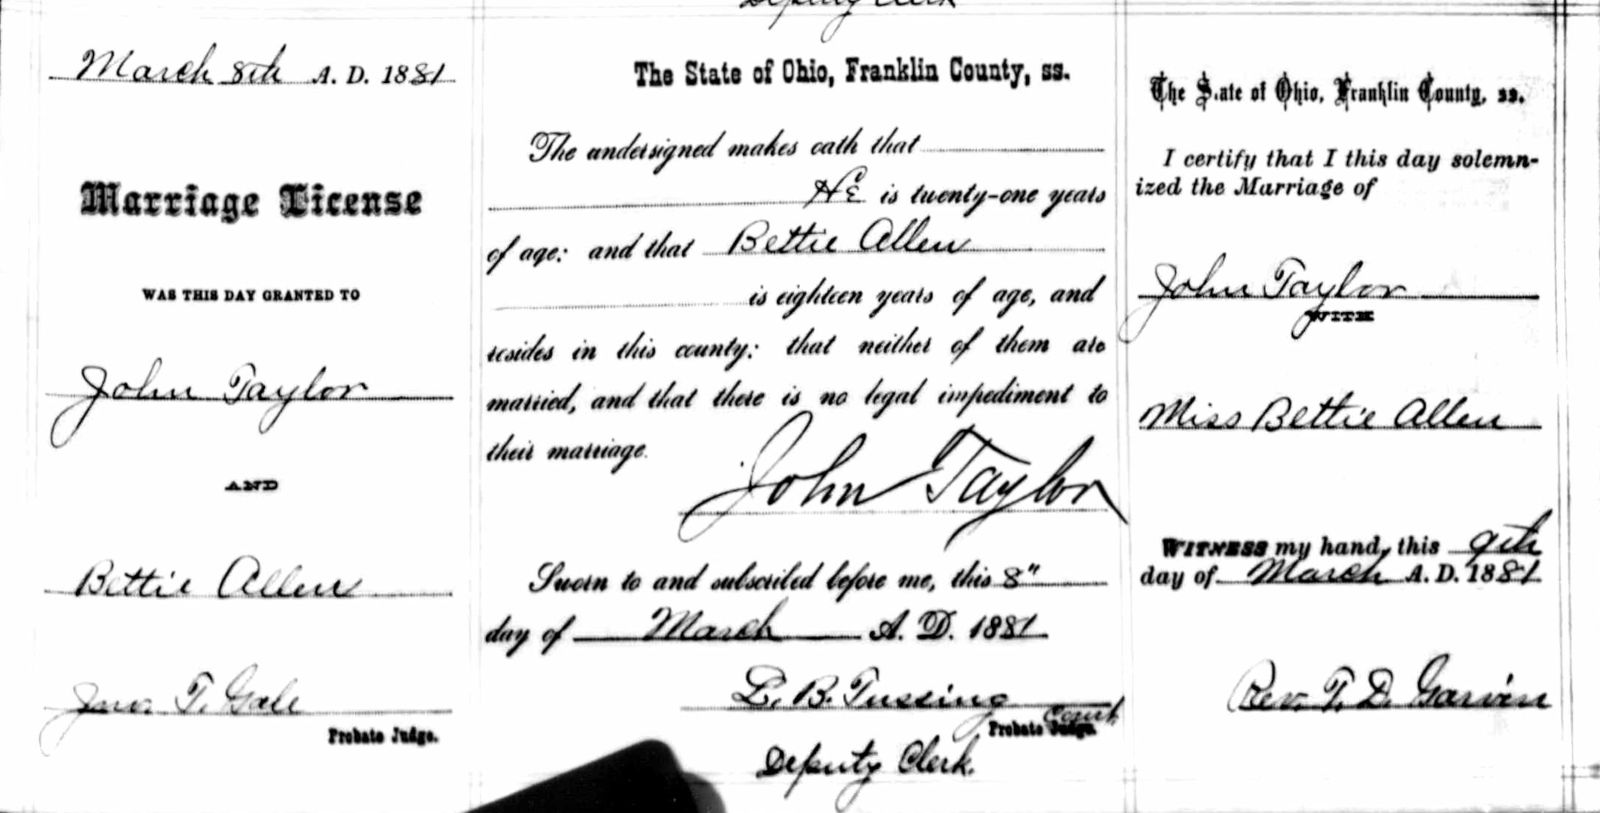 Deputy Clerk
March 8th A. D. 1881
Marriage License
WAS THIS DAY GRANTED TO
John Taylor
AND
Bettie Allen
Jno. T. Gale
Probate Judge.
The State of Ohio, Franklin County, ss.
The undersigned makes oath that
HE is twenty-one years
of age: and that Bettie Allen
is eighteen years of age, and
resides in this county: that neither of them are
married, and that there is no legal impediment to
their marriage.
John Taylor
Sworn to and subscribed before me, this 8"
day of March A. D. 1881
L. B. Tussing
Probate Judge. Court
Deputy Clerk.
The State of Ohio, Franklin County, ss.
I certify that I this day solemn-
ized the Marriage of
John Taylor
WITH
Miss Bettie Allen
WITNESS my hand, this 9th
day of March A. D. 1881
Rev. T. D. Garvin